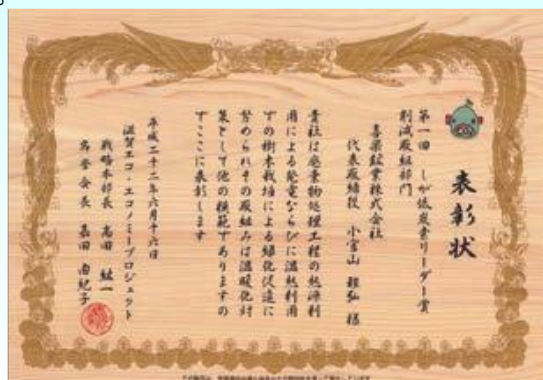 表彰状
第一回 しが低炭素リーダー賞
削減取組部門
喜楽鉱業株式会社
代表取締役 小宮山 雅弘 様
貴社は廃棄物処理工程の熱源利
用による発電ならびに温熱利用
での樹木栽培による緑化促進に
努められその取組みは温暖化対
策として他の模範でありますの
でここに表彰します
平成二十二年六月十六日
滋賀エコ・エコノミープロジェクト
戦略本部長 高田 紘一
名誉会長 嘉田 由紀子